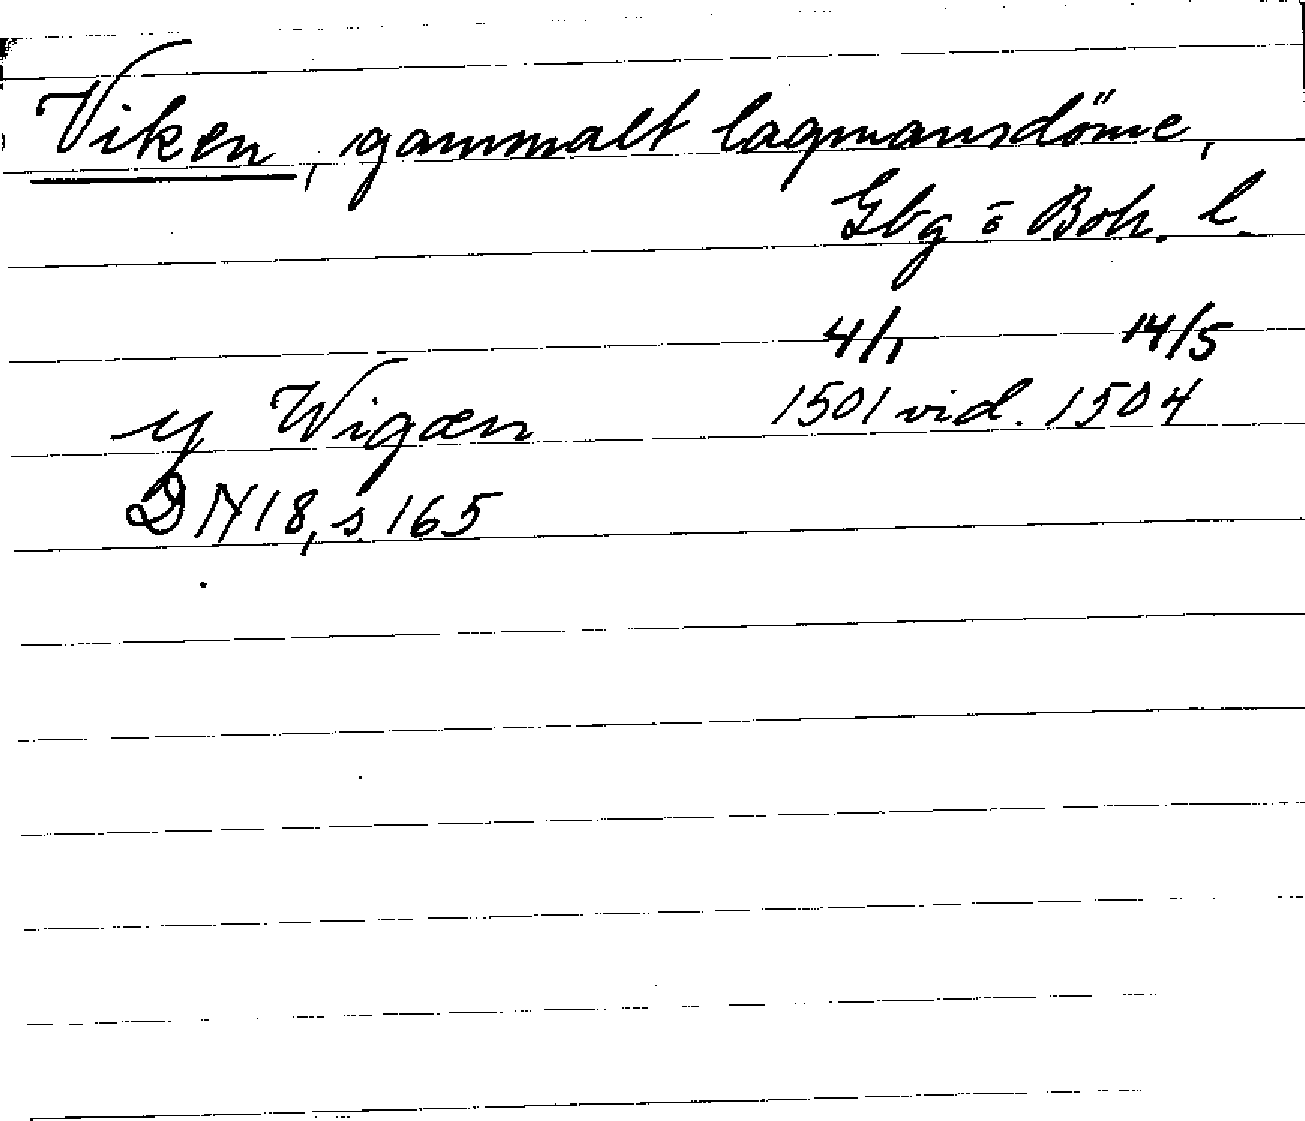 Viken, gammalt lagmansdöme,
Gbg o Boh. l.
4/1 14/5
y Wigæn 1501 vid. 1504
DN 18, s 165